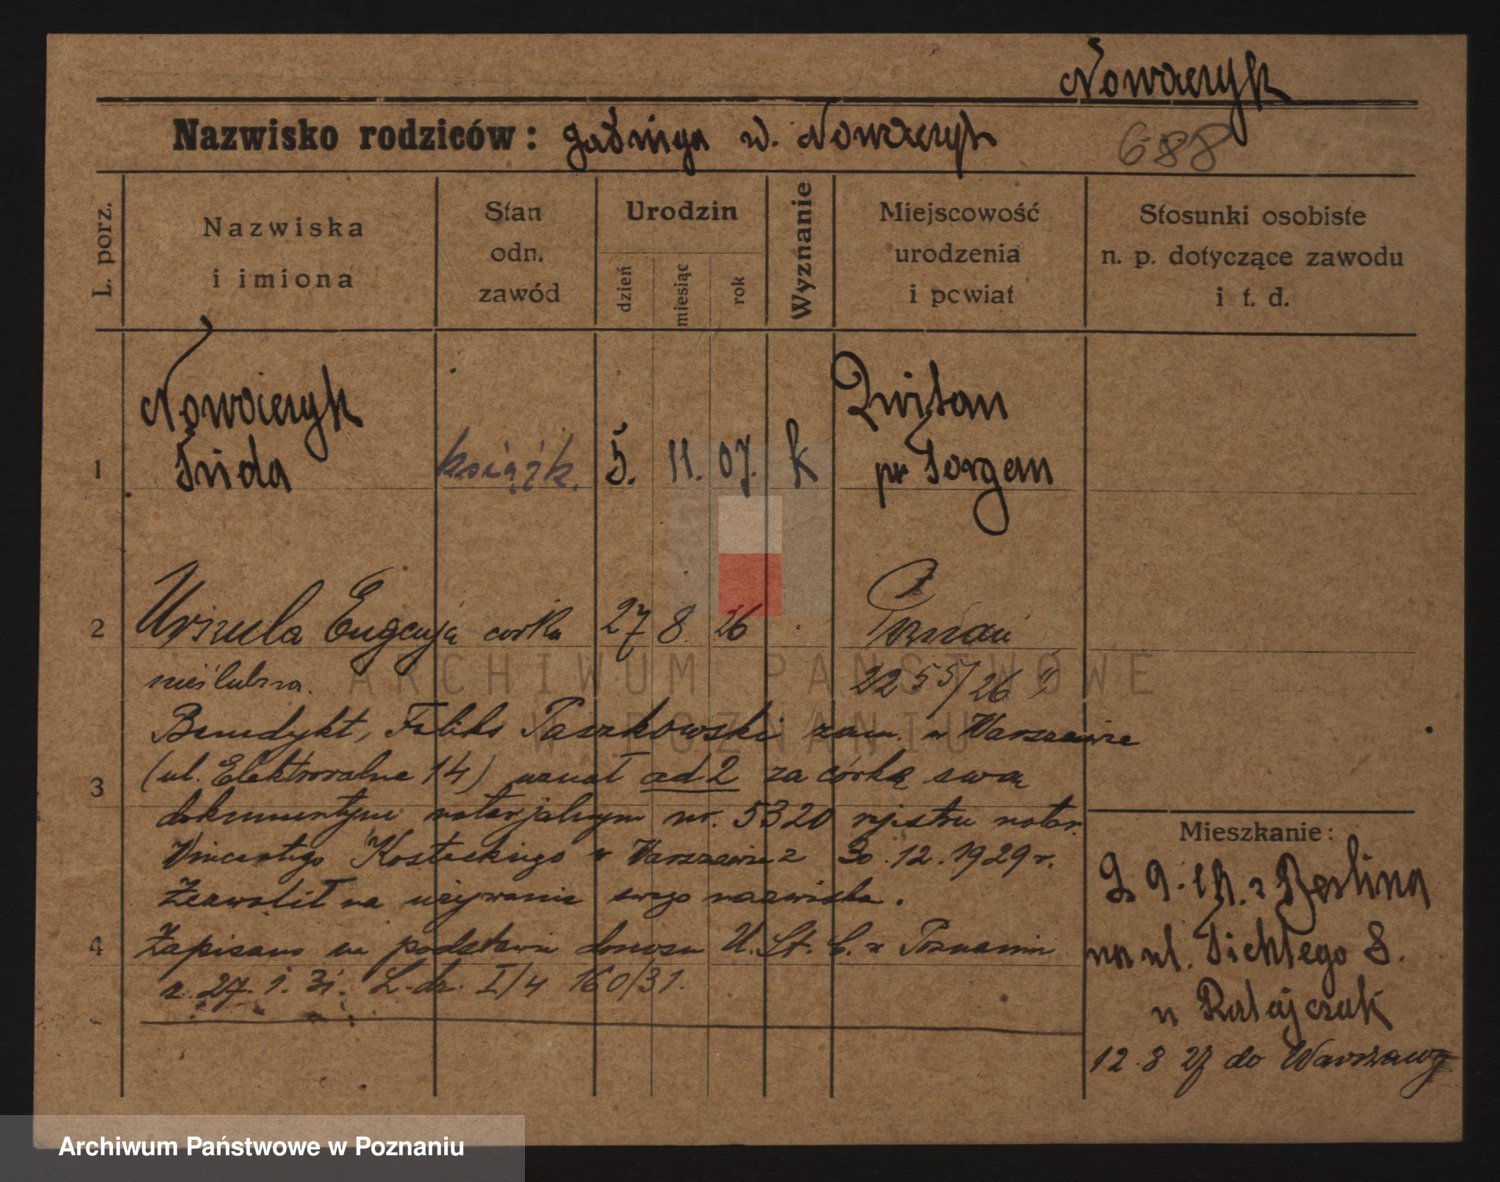 Nowaczyk
Nazwisko rodziców: Jadwiga w. Nowaczyk
688
L. porz.
Nazwiska i imiona
Stan odn. zawód
Urodzin
dzień
miesiąc
rok
Wyznanie
Miejscowość urodzenia i powiat
Stosunki osobiste n. p. dotyczące zawodu i t. d.
1 Nowaczyk książk. 5. 11. 07. k
pr Torgau
2 Urszula Eugenja córka 27 8 26 Poznań
nieślubna. 2255/26
Benedykt, Feliks Paszkowski zam. w Warszawie
3 (ul. Elektoralna 14) uznał ad 2 za córkę swą
dokumentem notarjalnym nr. 5320 rejestru notar.
Wincentego Kosteckiego w Warszawie z 30.12.1929 r.
Zezwolił na używanie swego nazwiska.
4 Zapisano na podstawie donosu U. St. C. z Poznania
z 27.1.31. L. dz. I/4 160/31.
Mieszkanie:
z Berlina
na ul. 8.
u Ratajczak
12.8 27 do Warszawy
ARCHIWUM PAŃSTWOWE
W POZNANIU
Archiwum Państwowe w Poznaniu